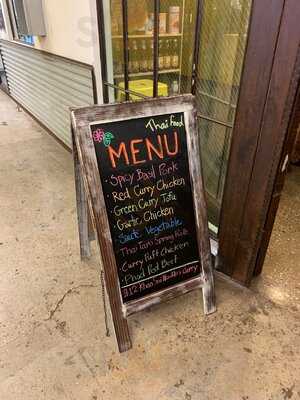 Thai Food
MENU
· Spicy Basil Pork
· Red Curry Chicken
· Green Curry Tofu
· Garlic Chicken
· Saute Vegetable
· Thai Taro Spring Rolls
· Curry Puff Chicken
· Phad Pad Beef
$12